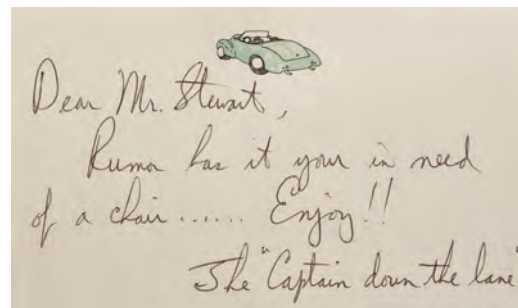 Dear Mr. Stewart,
Rumor has it your in need
of a chair...... Enjoy!!
The "Captain down the lane"